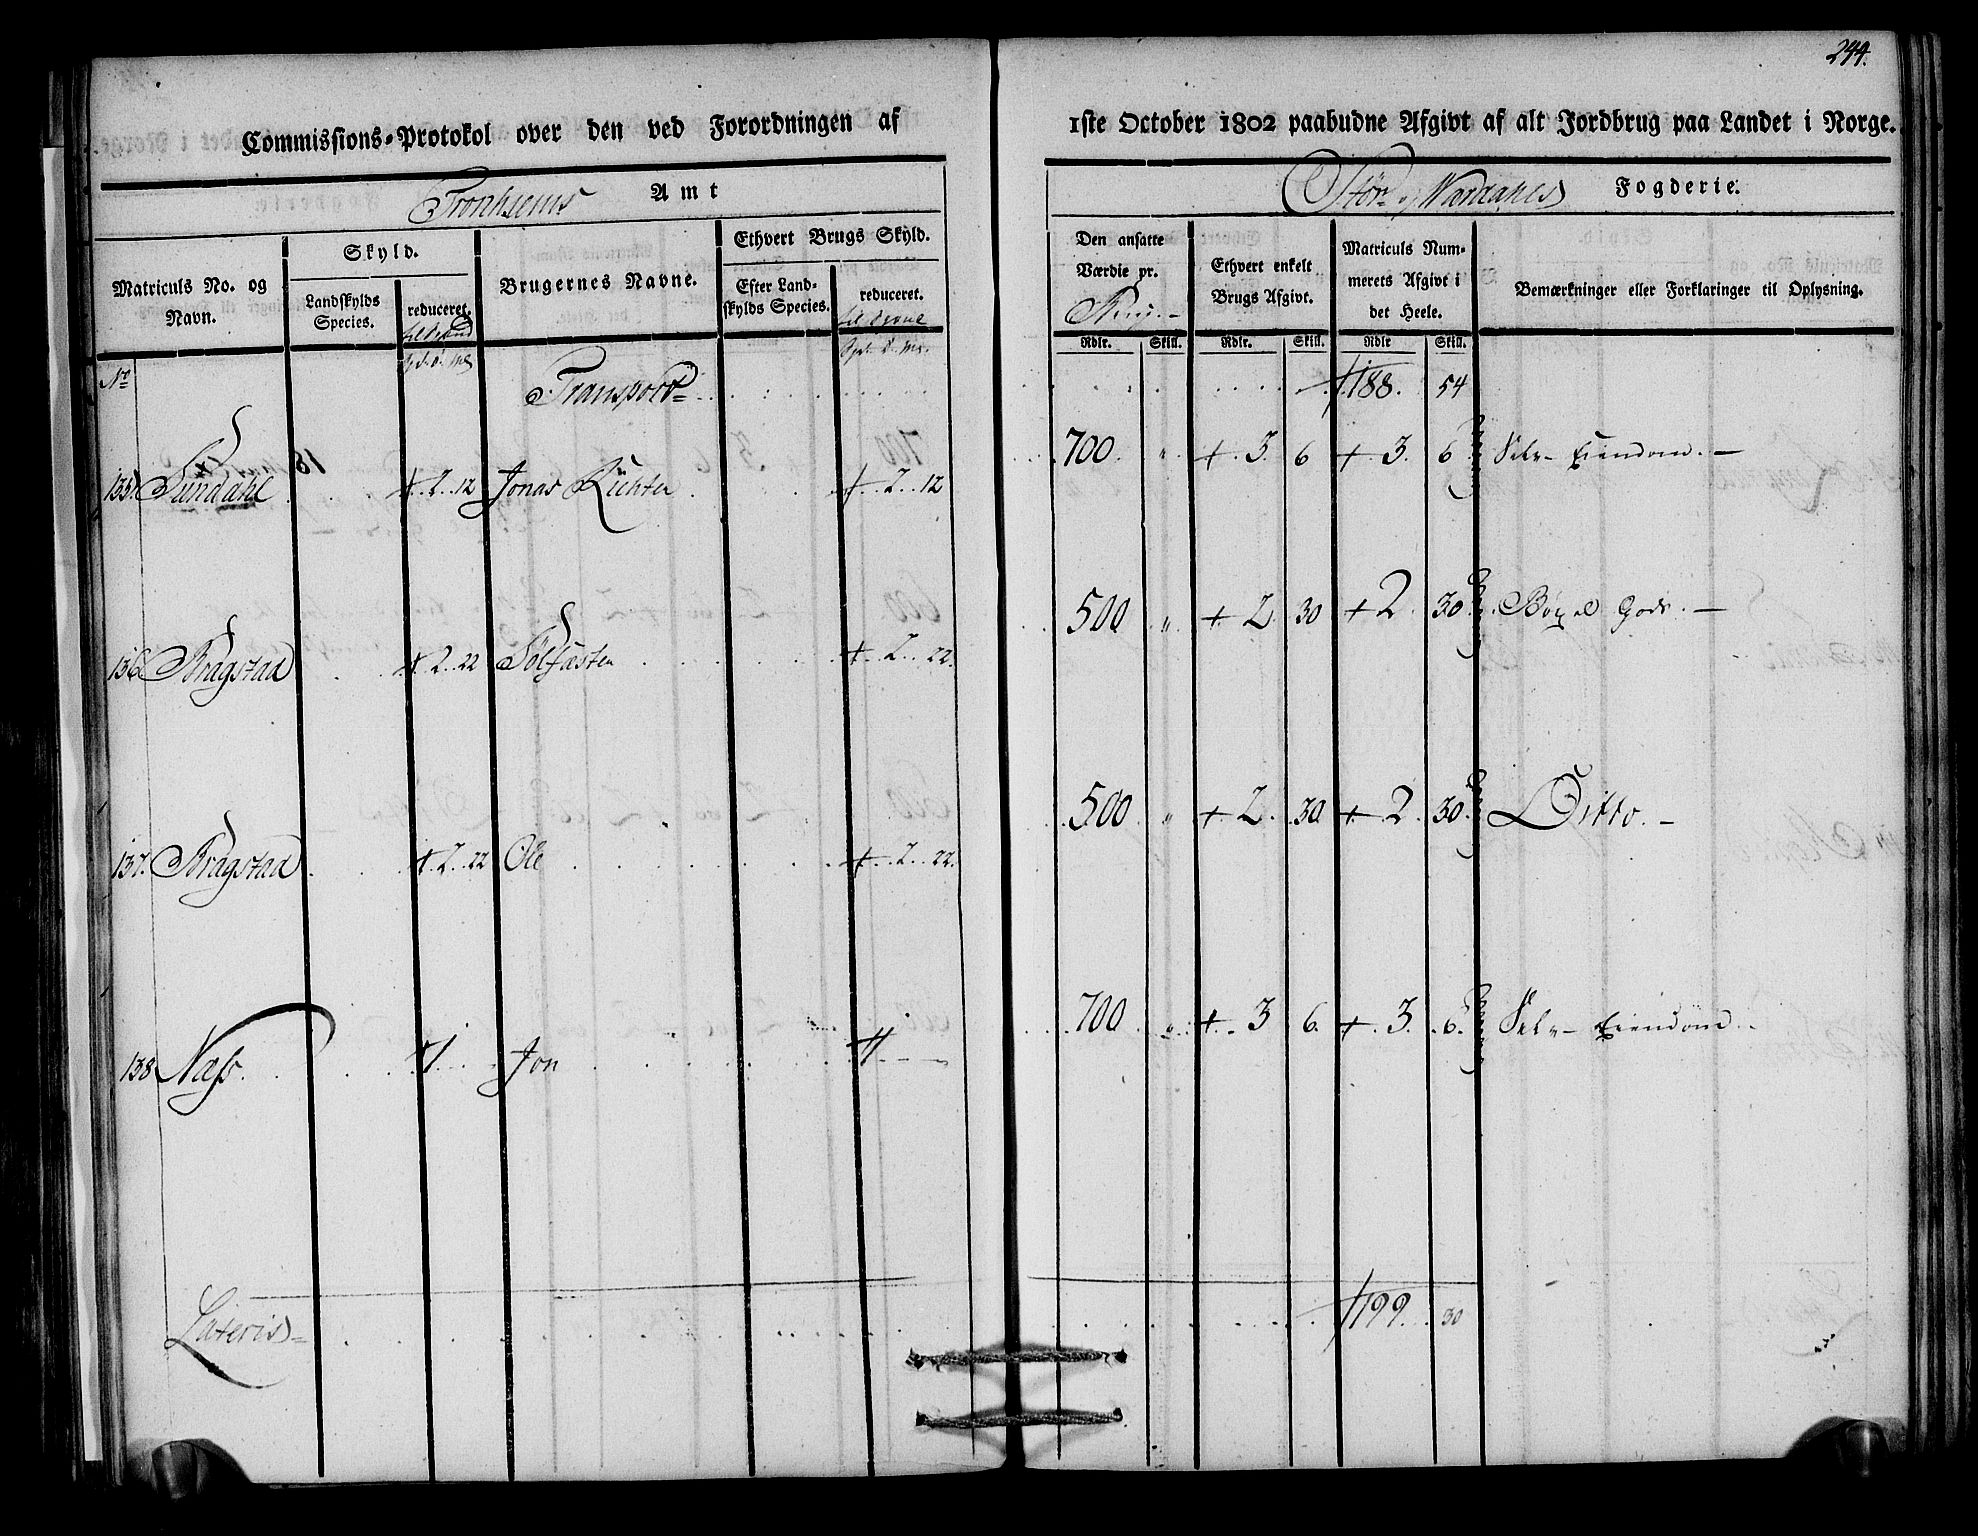 244.
Commissions-Protokol over den ved Forordningen af 1ste October 1802 paabudne Afgivt af alt Jordbrug paa Landet i Norge.
Tronhiems Amt
Stør og Værdahls Fogderie.
Matriculs No. og Navn.
Skyld.
Landskylds Species.
reduceret.
Brugernes Navne.
Ethvert Brugs Skyld.
Efter Landskylds Species.
reduceret.
Den ansatte Værdie pr.
Brug.
Ethvert enkelt Brugs Afgivt.
Matriculs Nummerets Afgivt i det Heele.
Bemærkninger eller Forklaringer til Oplysning.
Rdlr. Skill. Rdlr. Skill. Rdlr Skill.
No
Transport 188. 54
135. Sundahl 18 2 12 Jonas Richter 2 12 700 " 3 6 3 6 Selv-Eiendom. —
136 Bragstad 2 22 Sølfæsten 2 22. 500 " 2 30 2 30 Bøxel Gods. —
137. Bragstad 2 22 Ole 2 22. 500 " 2 30 2 30 Ditto. —
138 Næss 1 Jon 1 700 " 3 6. 3. 6. Selv-Eiendom.
Lateris 199 30